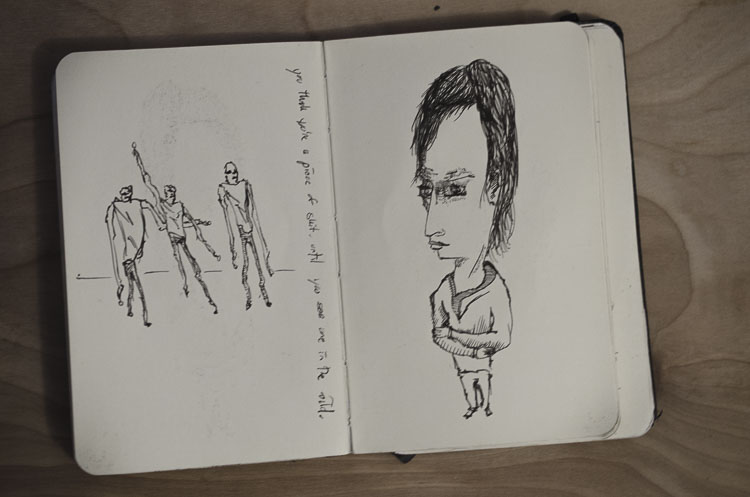 you think you're a piece of shit. until you see one in the wild.